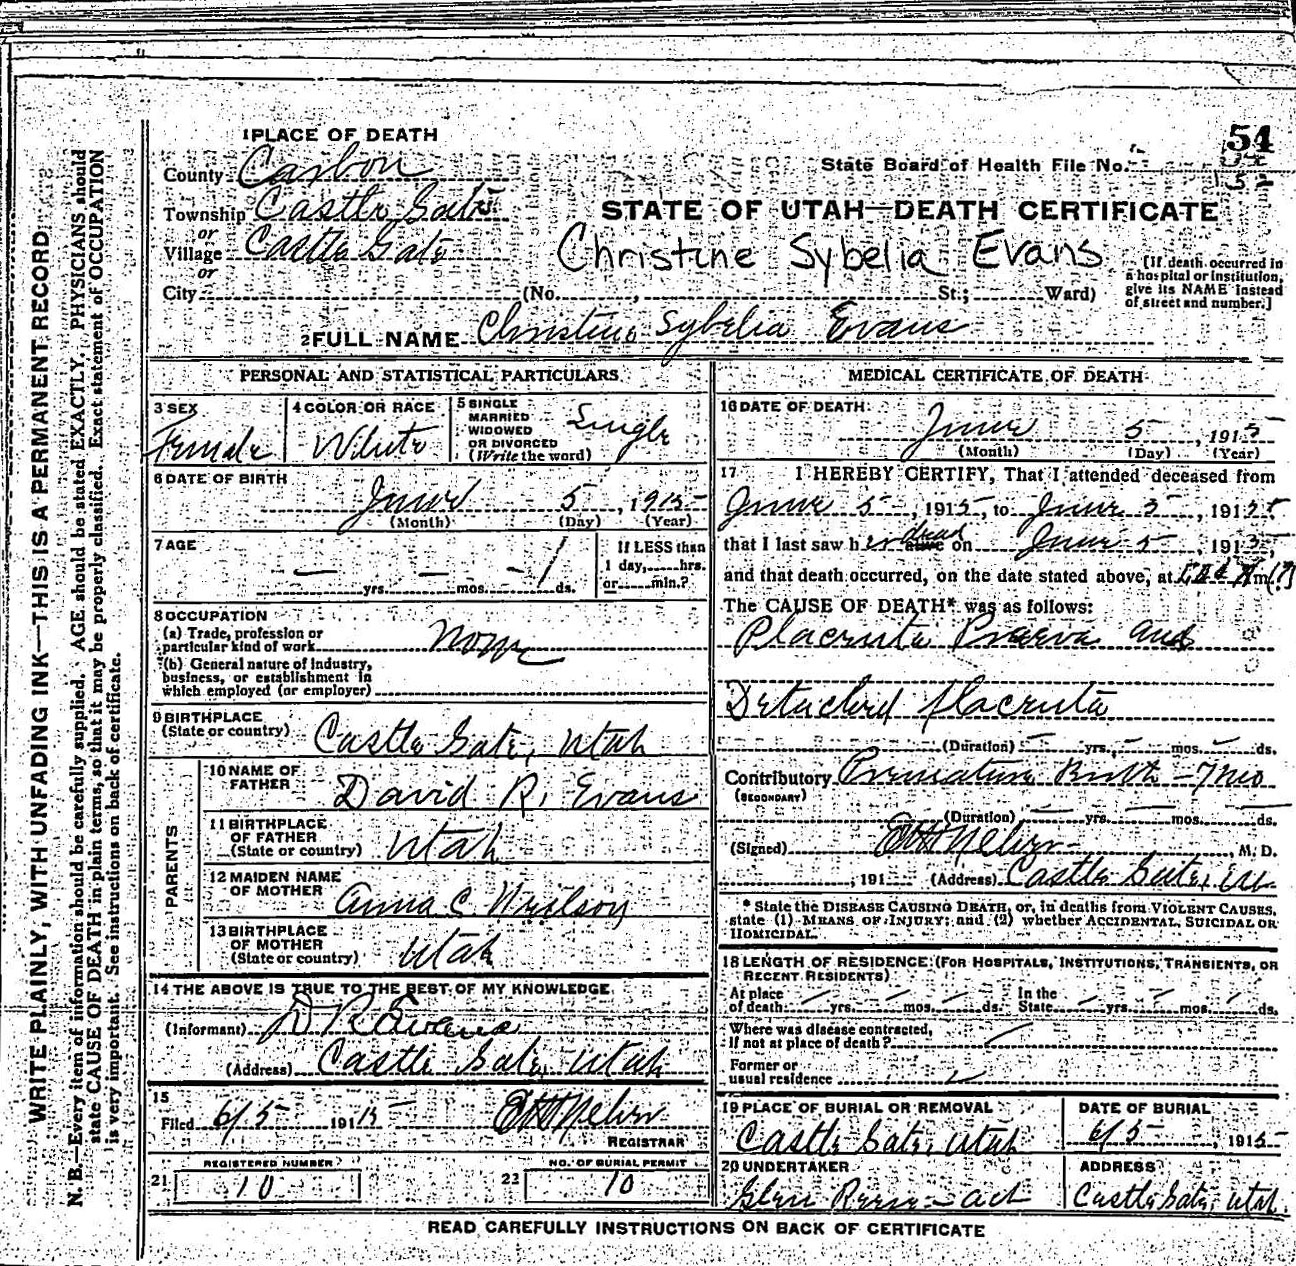 WRITE PLAINLY, WITH UNFADING INK—THIS IS A PERMANENT RECORD
N. B.—Every item of information should be carefully supplied. AGE should be stated EXACTLY. PHYSICIANS should
state CAUSE OF DEATH in plain terms, so that it may be properly classified. Exact statement of OCCUPATION
is very important. See instructions on back of certificate.
1 PLACE OF DEATH
54
County Carbon
State Board of Health File No.
Township Castle Gate
STATE OF UTAH—DEATH CERTIFICATE
or
Village Castle Gate
Christine Sybelia Evans
or
[If death occurred in
a hospital or institution,
give its NAME instead
of street and number.]
City (No. , St.; Ward)
2 FULL NAME Christine Sybelia Evans
PERSONAL AND STATISTICAL PARTICULARS
3 SEX
Female
4 COLOR OR RACE
White
5 SINGLE
MARRIED
WIDOWED
OR DIVORCED
(Write the word)
Single
6 DATE OF BIRTH
June 5, 1915
(Month) (Day) (Year)
7 AGE
— yrs. — mos. — 1 ds.
If LESS than
1 day, hrs.
or min.?
8 OCCUPATION
(a) Trade, profession or
particular kind of work None
(b) General nature of industry,
business, or establishment in
which employed (or employer)
9 BIRTHPLACE
(State or country) Castle Gate, Utah
PARENTS
10 NAME OF
FATHER David R. Evans
11 BIRTHPLACE
OF FATHER
(State or country) Utah
12 MAIDEN NAME
OF MOTHER Anna C. Neilson
13 BIRTHPLACE
OF MOTHER
(State or country) Utah
14 THE ABOVE IS TRUE TO THE BEST OF MY KNOWLEDGE
(Informant) D R Evans
(Address) Castle Gate, Utah
15
Filed 6/5 1915
REGISTRAR
REGISTERED NUMBER
21 10
NO. OF BURIAL PERMIT
22 10
MEDICAL CERTIFICATE OF DEATH
16 DATE OF DEATH
June 5, 1915
(Month) (Day) (Year)
17 I HEREBY CERTIFY, That I attended deceased from
June 5, 1915, to June 5, 1915
that I last saw her alive dead on June 5, 191
and that death occurred, on the date stated above, at m (?)
The CAUSE OF DEATH* was as follows:
Placenta Praevia and
Detached placenta
(Duration) — yrs. — mos. — ds.
Contributory Premature Birth — 7 mo
(SECONDARY)
(Duration) — yrs. — mos. — ds.
(Signed) , M. D.
, 191 (Address) Castle Gate, Ut
* State the DISEASE CAUSING DEATH, or, in deaths from VIOLENT CAUSES,
state (1) MEANS OF INJURY; and (2) whether ACCIDENTAL, SUICIDAL OR
HOMICIDAL.
18 LENGTH OF RESIDENCE (FOR HOSPITALS, INSTITUTIONS, TRANSIENTS, OR
RECENT RESIDENTS)
At place
of death yrs. mos. ds.
In the
State yrs. mos. ds.
Where was disease contracted,
If not at place of death?
Former or
usual residence
19 PLACE OF BURIAL OR REMOVAL
Castle Gate, Utah
DATE OF BURIAL
6/5, 1915
20 UNDERTAKER
ADDRESS
Castle Gate, Utah
READ CAREFULLY INSTRUCTIONS ON BACK OF CERTIFICATE